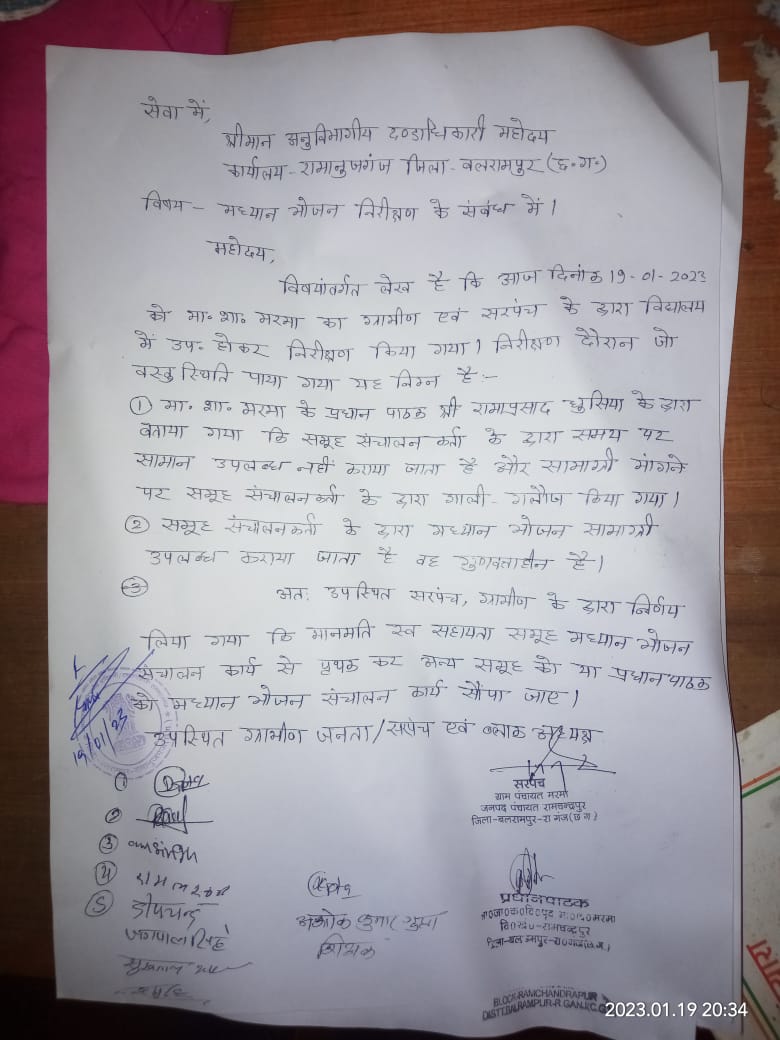 सेवा में,
श्रीमान अनुविभागीय दण्डाधिकारी महोदय
कार्यालय - रामानुजगंज जिला - बलरामपुर (छ.ग.)
विषय - मध्यान भोजन निरीक्षण के संबंध में।
महोदय,
विषयांतर्गत लेख है कि आज दिनांक 19-01-2023
को मा. शा. मरमा का ग्रामीण एवं सरपंच के द्वारा विद्यालय
में उप. होकर निरीक्षण किया गया। निरीक्षण दौरान जो
वस्तु स्थिति पाया गया यह निम्न है:-
① मा. शा. मरमा के प्रधान पाठक श्री रामाप्रसाद के द्वारा
बताया गया कि समूह संचालन कर्ता के द्वारा समय पर
सामान उपलब्ध नहीं कराया जाता है और सामाग्री मांगने
पर समूह संचालनकर्ता के द्वारा गाली-गलौज किया गया।
② समूह संचालनकर्ता के द्वारा मध्यान भोजन सामाग्री
उपलब्ध कराया जाता है वह गुणवताहीन है।
③ अतः उपस्थित सरपंच, ग्रामीण के द्वारा निर्णय
लिया गया कि मानमति स्व सहायता समूह मध्यान भोजन
संचालन कार्य से पृथक कर अन्य समूह को या प्रधानपाठक
को मध्यान भोजन संचालन कार्य सौंपा जाए।
उपस्थित ग्रामीण जनता/सरपंच एवं ब्लाक अध्यक्ष
19/01/23
सरपंच
ग्राम पंचायत मरमा
जनपद पंचायत रामचन्द्रपुर
जिला-बलरामपुर-रा गंज(छ ग)
①
②
③
④
⑤ दीपचन्द्र
अशोक कुमार गुप्ता
शिक्षक
प्रधानपाठक
वि०ख०-रामचन्द्रपुर
BLOCK-RAMCHANDRAPUR
DISTT.BALRAMPUR-R.GANJ(C.G
2023.01.19 20:34